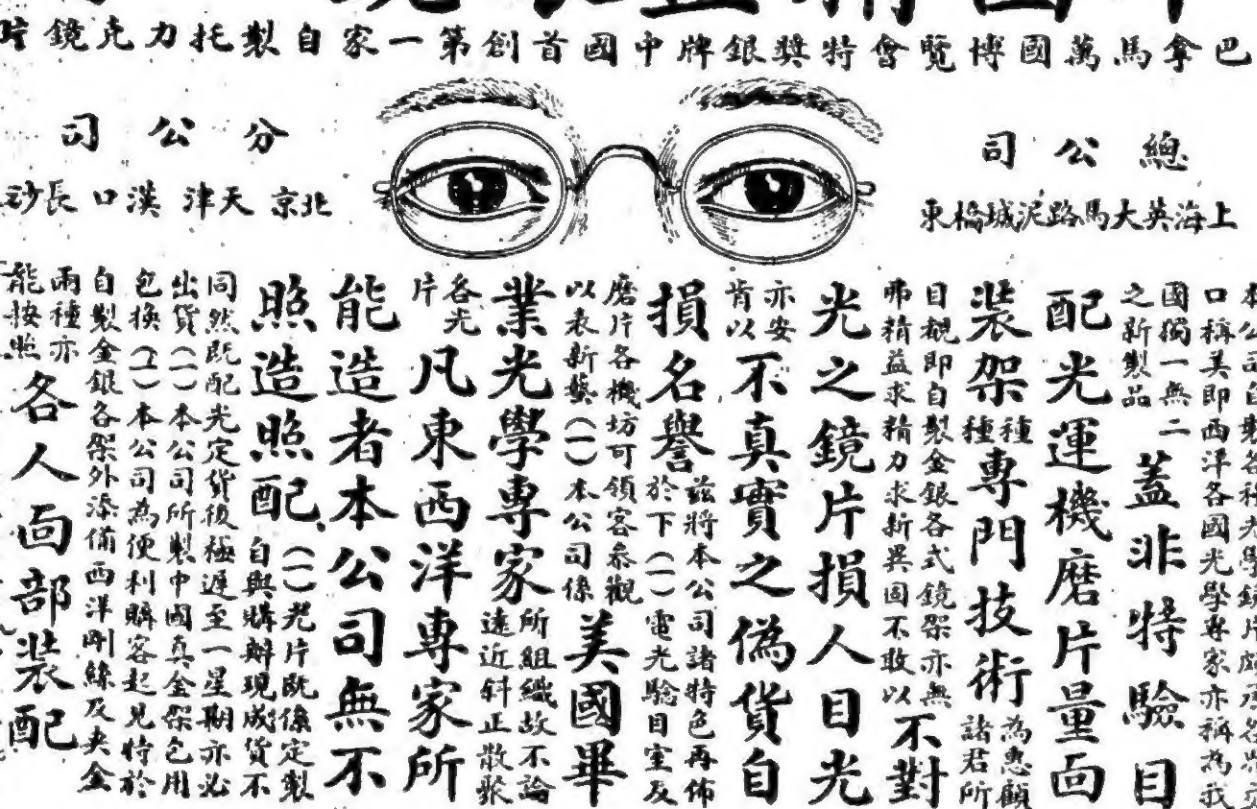 巴拿馬萬國博覽會特獎銀牌中國首創第一家自製托力克鏡片
總公司
上海英大馬路泥城橋東
分公司
北京 天津 漢口 長沙
口稱美即西洋各國光學專家亦稱為我
國獨一無二
之新製品
蓋非特驗目
配光運機磨片量面
裝架
種
種
專門技術
為惠顧
諸君所
目覩即自製金銀各式鏡架亦無
弗精益求精力求新異固不敢以
不對
光之鏡片損人目光
亦安
肯以
不真實之偽貨自
損名譽
茲將本公司諸特色再佈
於下(一)電光驗目室及
磨片各機坊可領客參觀
以表新藝(一)本公司係
美國畢
業光學專家
所組織故不論
遠近斜正散聚
各光
片
凡東西洋專家所
能造者本公司無不
照造照配
(一)光片既係定製
自與購辦現成貨不
同然既配光定貨後極遲至一星期亦必
出貨(一)本公司所製中國真金架包用
包換(一)本公司為便利購客起見特於
自製金銀各架外添備西洋剛絲及夾金
兩種亦
能按照
各人面部裝配